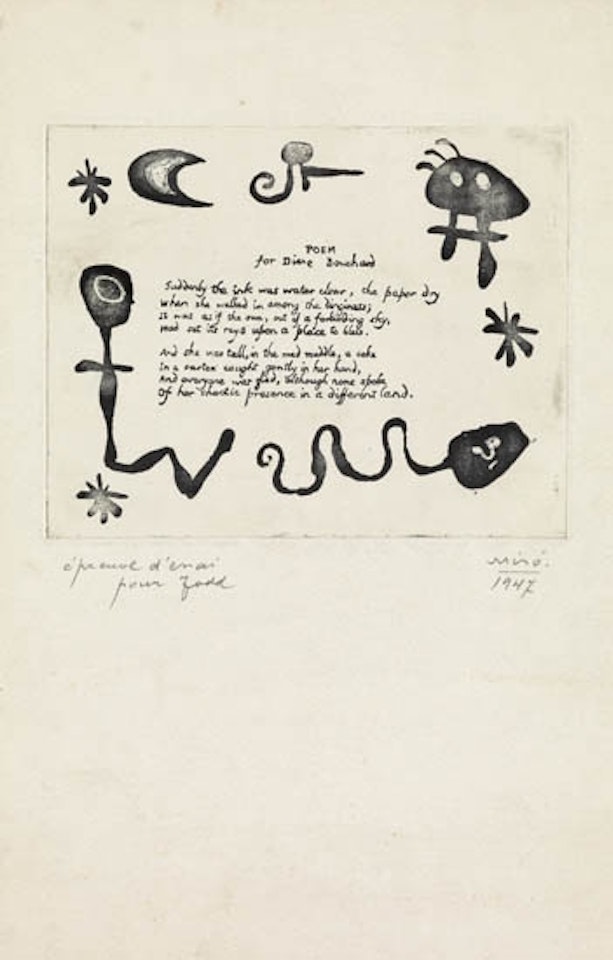 POEM
for Diane Bouchard
Suddenly the ink was water clear, the paper dry
When she walked in among the
It was as if the sun, out of a forbidding sky,
had set its rays upon a place to bless.
And she was tall, in the mad middle, a
in a vortex caught gently in her hand,
And everyone was glad, although none spoke
Of her presence in a different land.
épreuve d'essai
pour Todd
Miró.
1947